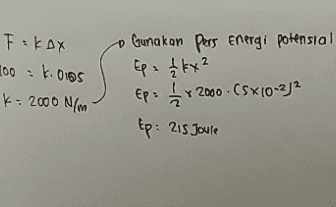 F = k Δx
100 = k. 0,05
k = 2000 N/m
Gunakan Pers Energi potensial
Ep = 1/2 kx²
Ep = 1/2 x 2000 . (5x10-2)²
Ep : 2,5 Joule